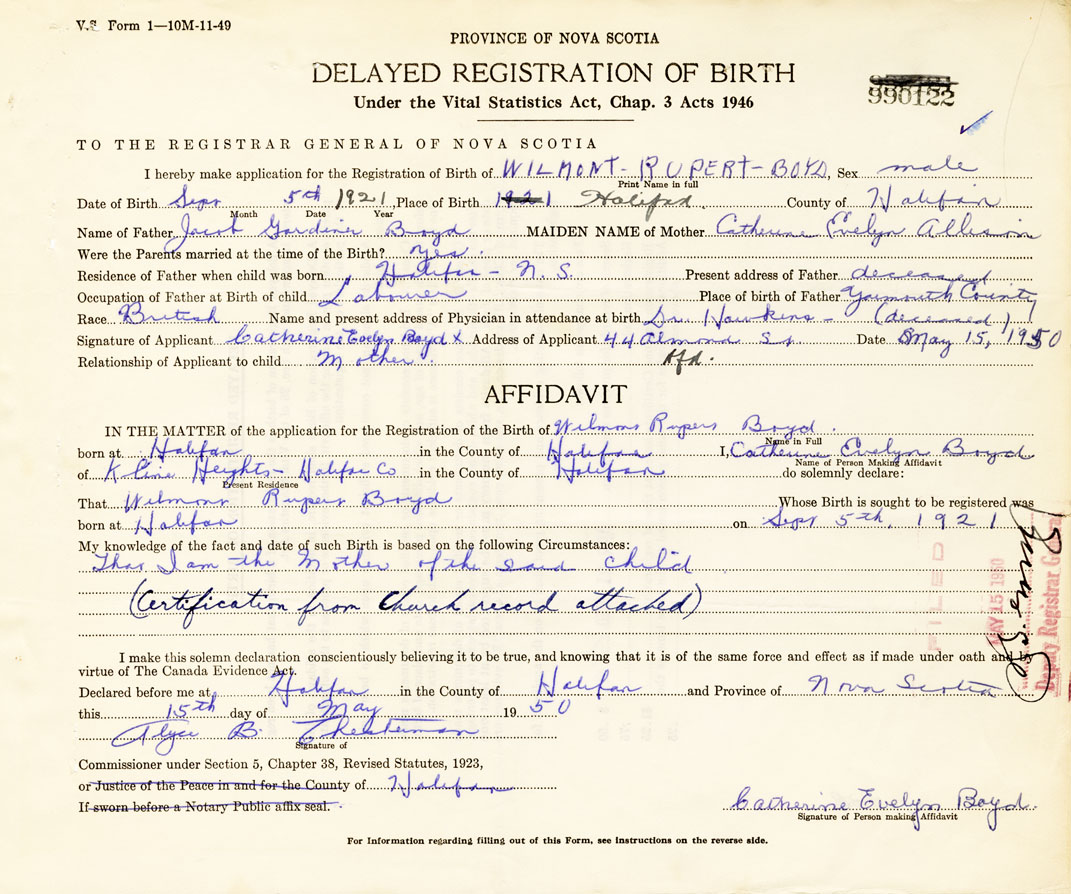 V.S. Form 1—10M-11-49
PROVINCE OF NOVA SCOTIA
DELAYED REGISTRATION OF BIRTH
Under the Vital Statistics Act, Chap. 3 Acts 1946
990122
TO THE REGISTRAR GENERAL OF NOVA SCOTIA
I hereby make application for the Registration of Birth of WILMONT-RUPERT-BOYD, Sex male
Print Name in full
Date of Birth Sept 5th 1921, Place of Birth Halifax County of Halifax
Month Date Year
Name of Father Jacob Gardiner Boyd MAIDEN NAME of Mother Catherine Evelyn Allison
Were the Parents married at the time of the Birth? yes.
Residence of Father when child was born Halifax - N.S. Present address of Father deceased
Occupation of Father at Birth of child Labourer Place of birth of Father Yarmouth County
Race British Name and present address of Physician in attendance at birth Dr. Hawkins - (deceased)
Signature of Applicant Catherine Evelyn Boyd x Address of Applicant 44 Almond St Date May 15, 1950
Relationship of Applicant to child Mother. Hfd.
AFFIDAVIT
IN THE MATTER of the application for the Registration of the Birth of Wilmont Rupert Boyd.
Name in Full
born at Halifax in the County of Halifax I, Catherine Evelyn Boyd
Name of Person Making Affidavit
of Kline Heights - Halifax Co in the County of Halifax do solemnly declare:
Present Residence
That Wilmont Rupert Boyd Whose Birth is sought to be registered was
born at Halifax on Sept 5th, 1921
My knowledge of the fact and date of such Birth is based on the following Circumstances:
That I am the Mother of the said child
(Certification from Church record attached)
FILED
MAY 15 1950
Deputy Registrar General
I make this solemn declaration conscientiously believing it to be true, and knowing that it is of the same force and effect as if made under oath and by
virtue of The Canada Evidence Act.
Declared before me at Halifax in the County of Halifax and Province of Nova Scotia
this 15th day of May 1950
Alyce B. Chesterman
Signature of
Commissioner under Section 5, Chapter 38, Revised Statutes, 1923,
or Justice of the Peace in and for the County of Halifax
If sworn before a Notary Public affix seal.
Catherine Evelyn Boyd.
Signature of Person making Affidavit
For Information regarding filling out of this Form, see Instructions on the reverse side.